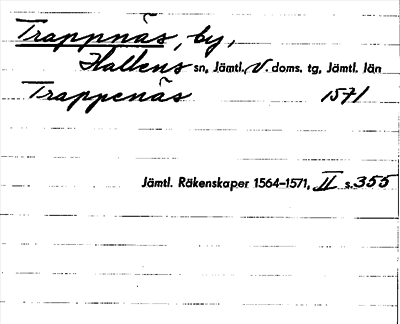 Trappnäs, by,
Hallens sn, Jämtl. V. doms. tg, Jämtl. län
Trappenäs 1571
Jämtl. Räkenskaper 1564-1571, II s. 355